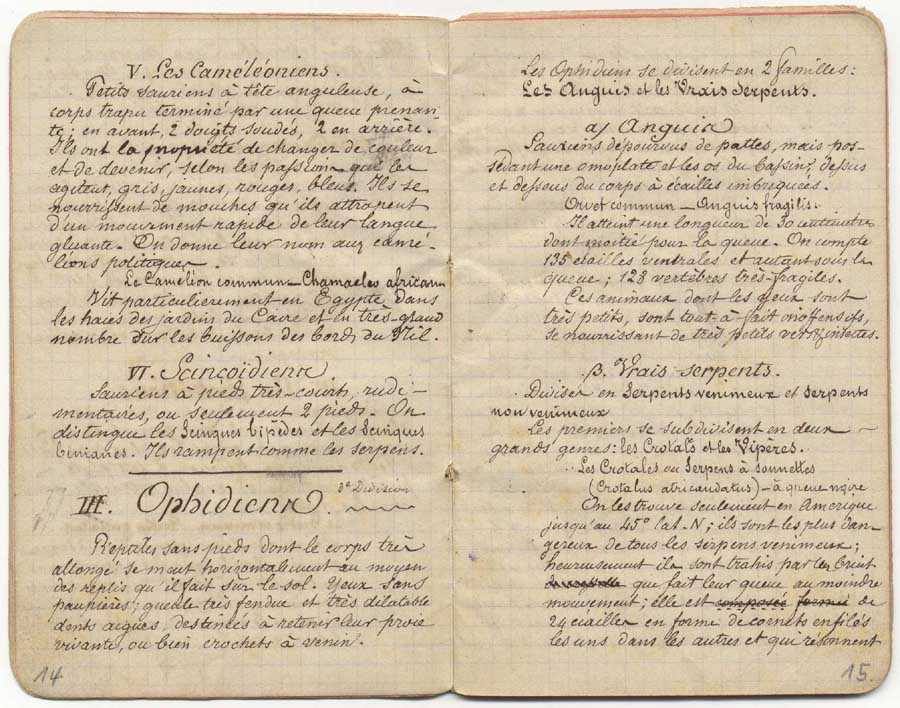 V. Les Caméléoniens.
Petits sauriens à tête anguleuse, à
corps trapu terminé par une queue prenan-
te; en avant, 2 doigts soudés, 2 en arrière.
Ils ont la propriété de changer de couleur
et de devenir, selon les passions qui les
agitent, gris, jaunes, rouges, bleus. Ils se
nourrissent de mouches qu'ils attrapent
d'un mouvement rapide de leur langue
gluante. On donne leur nom aux camé-
léons politiques.
Le Caméléon commun - Chamaeleo africanus
Vit particulièrement en Egypte dans
les haies des jardins du Caire et en très-grand
nombre sur les buissons des bords du Nil.
VI. Scincoïdiens
Sauriens à pieds très-courts, rudi-
mentaires, ou seulement 2 pieds. On
distingue les Scinques bipèdes et les Scinques
bimanes. Ils rampent comme les serpens.
III. Ophidiens. 3e Division
Reptiles sans pieds dont le corps très
allongé se meut horizontalement au moyen
des replis qu'il fait sur le sol. Yeux sans
paupières; gueule très fendue et très dilatable
dents aigues, destinées à retenir leur proie
vivante, ou bien crochets à venin.
14
Les Ophidiens se divisent en 2 familles:
Les Anguis et les Vrais Serpents.
a) Anguis
Sauriens dépourvus de pattes, mais pos-
sédant une omoplate et les os du bassin, dessus
et dessous du corps à écailles imbriquées.
Orvet commun - Anguis fragilis.
Il atteint une longueur de 30 centimètres
dont moitié pour la queue. On compte
135 écailles ventrales et autant sous la
queue; 128 vertèbres très-fragiles.
Ces animaux dont les yeux sont
très petits, sont tout à fait inoffensifs,
se nourrissant de très petits vers & insectes.
β. Vrais serpents.
Divisés en Serpents venimeux et serpents
non venimeux
Les premiers se subdivisent en deux
grands genres: les Crotals et les Vipères.
Les Crotales ou Serpens à sonnettes
(Crotalus atricaudatus) - à queue noire
On les trouve seulement en Amérique
jusqu'au 45° lat. N; ils sont les plus dan-
gereux de tous les serpens venimeux;
heureusement ils sont trahis par le bruit
que fait leur queue au moindre
mouvement; elle est composée formée de
24 écailles en forme de cornets enfilés
les uns dans les autres et qui résonnent
15.